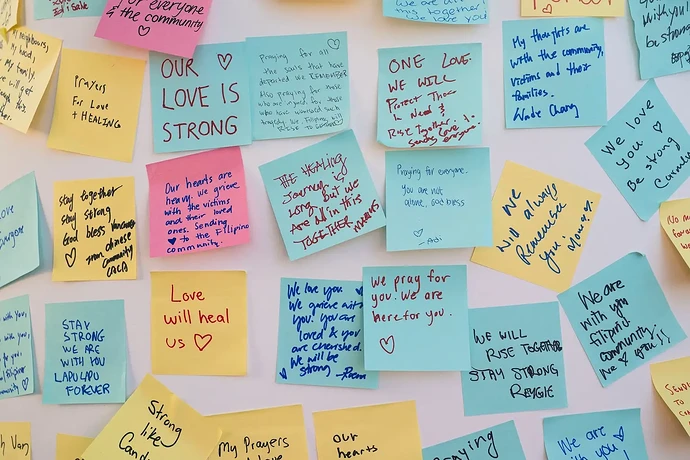 or everyone
& the community
together
love you
y Neighbours,
My family,
Prayers
For Love
+ HEALING
OUR
LOVE IS
STRONG
Praying for all
the souls that have
departed
Also praying for those
ONE LOVE.
WE WILL
Protect Those
In Need &
Rise Together.
Sending love
My thoughts are
with the community,
victims and their
families.
Wade Chang
with you!
be strong
We love
you
Be strong
Stay together
Stay strong
God bless Vancouver
from chinese
community
CACA
Our hearts are
heavy. We grieve
with the victims
and their loved
ones. Sending
to the Filipino
community.
THE HEALING
Journey is
long but we
Are all in this
TOGETHER
Praying for everyone.
You are not
alone, God bless
We
will always
Remember
you!
Love
everyone
STAY
STRONG
WE ARE
WITH YOU
LAPU LAPU
FOREVER
Love
will heal
us
We love you.
We grieve with
you. You are
loved & you
are cherished.
We will be
strong
We pray for
you. We are
here for you.
WE WILL
RISE TOGETHER
STAY STRONG
REYGIE
We are
with you
filipino
community
We you!!
Strong
like
My Prayers
our
hearts
Praying
We are
with you